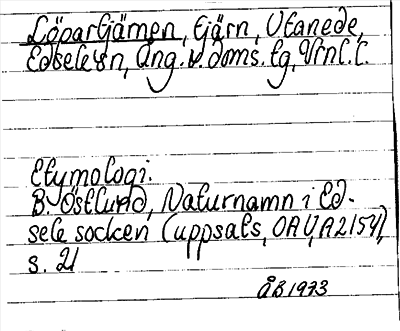 Löpartjämen, tjärn, Utanede,
Edsele sn, Ång. v. doms. tg, Vrnl. l.
Etymologi:
B. Östlund, Naturnamn i Ed-
sele socken (uppsats, OAU, A2154),
s. 21
ÅB 1973